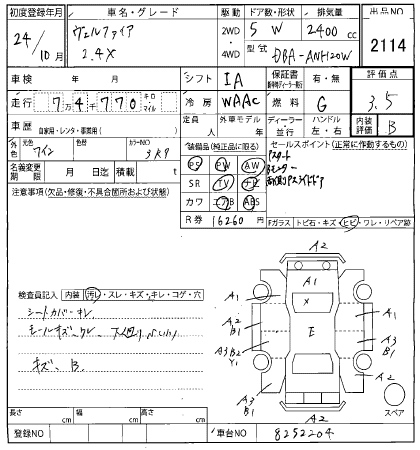 初度登録年月 車名・グレード 駆動 ドア数・形状 排気量 出品NO
24/10月 ヴェルファイア 2.4X 2WD 4WD 5 W 2400 cc 2114
型式 DBA-ANH20W
車検 年 月 シフト IA 保証書 有・無 評価点
走行 7万4千770 キロ・マイル 冷房 WAAC 燃料 G 3.5
車歴 自家用・レンタ・事業用( ) 定員 人 外車モデル 年 ディーラー 並行 ハンドル 左・右 内装評価 B
外色 元色 ワイン 色替 カラーNO 3R9
装備品(純正品に限る) セールスポイント(正常に作動するもの)
名義変更期限 月 日迄 積載 t
PS PW AW
Pスタート
注意事項(欠品・修復・不具合箇所および状態)
SR TV ナビ
カワ エアB ABS
R券 16260 円
Fガラス トビ石・キズ・ヒビ・ワレ・リペア跡
検査員記入 内装 汚レ・スレ・キズ・キレ・コゲ・穴
シートカバーキレ
キズ、B
A2
A1
A1 X A1
A2 B1 E A2
A3 B2 Y1 A3 B1
A3 B1 A2
A2
スペア
長さ cm 幅 cm 高さ cm
登録NO 車台NO 8252204